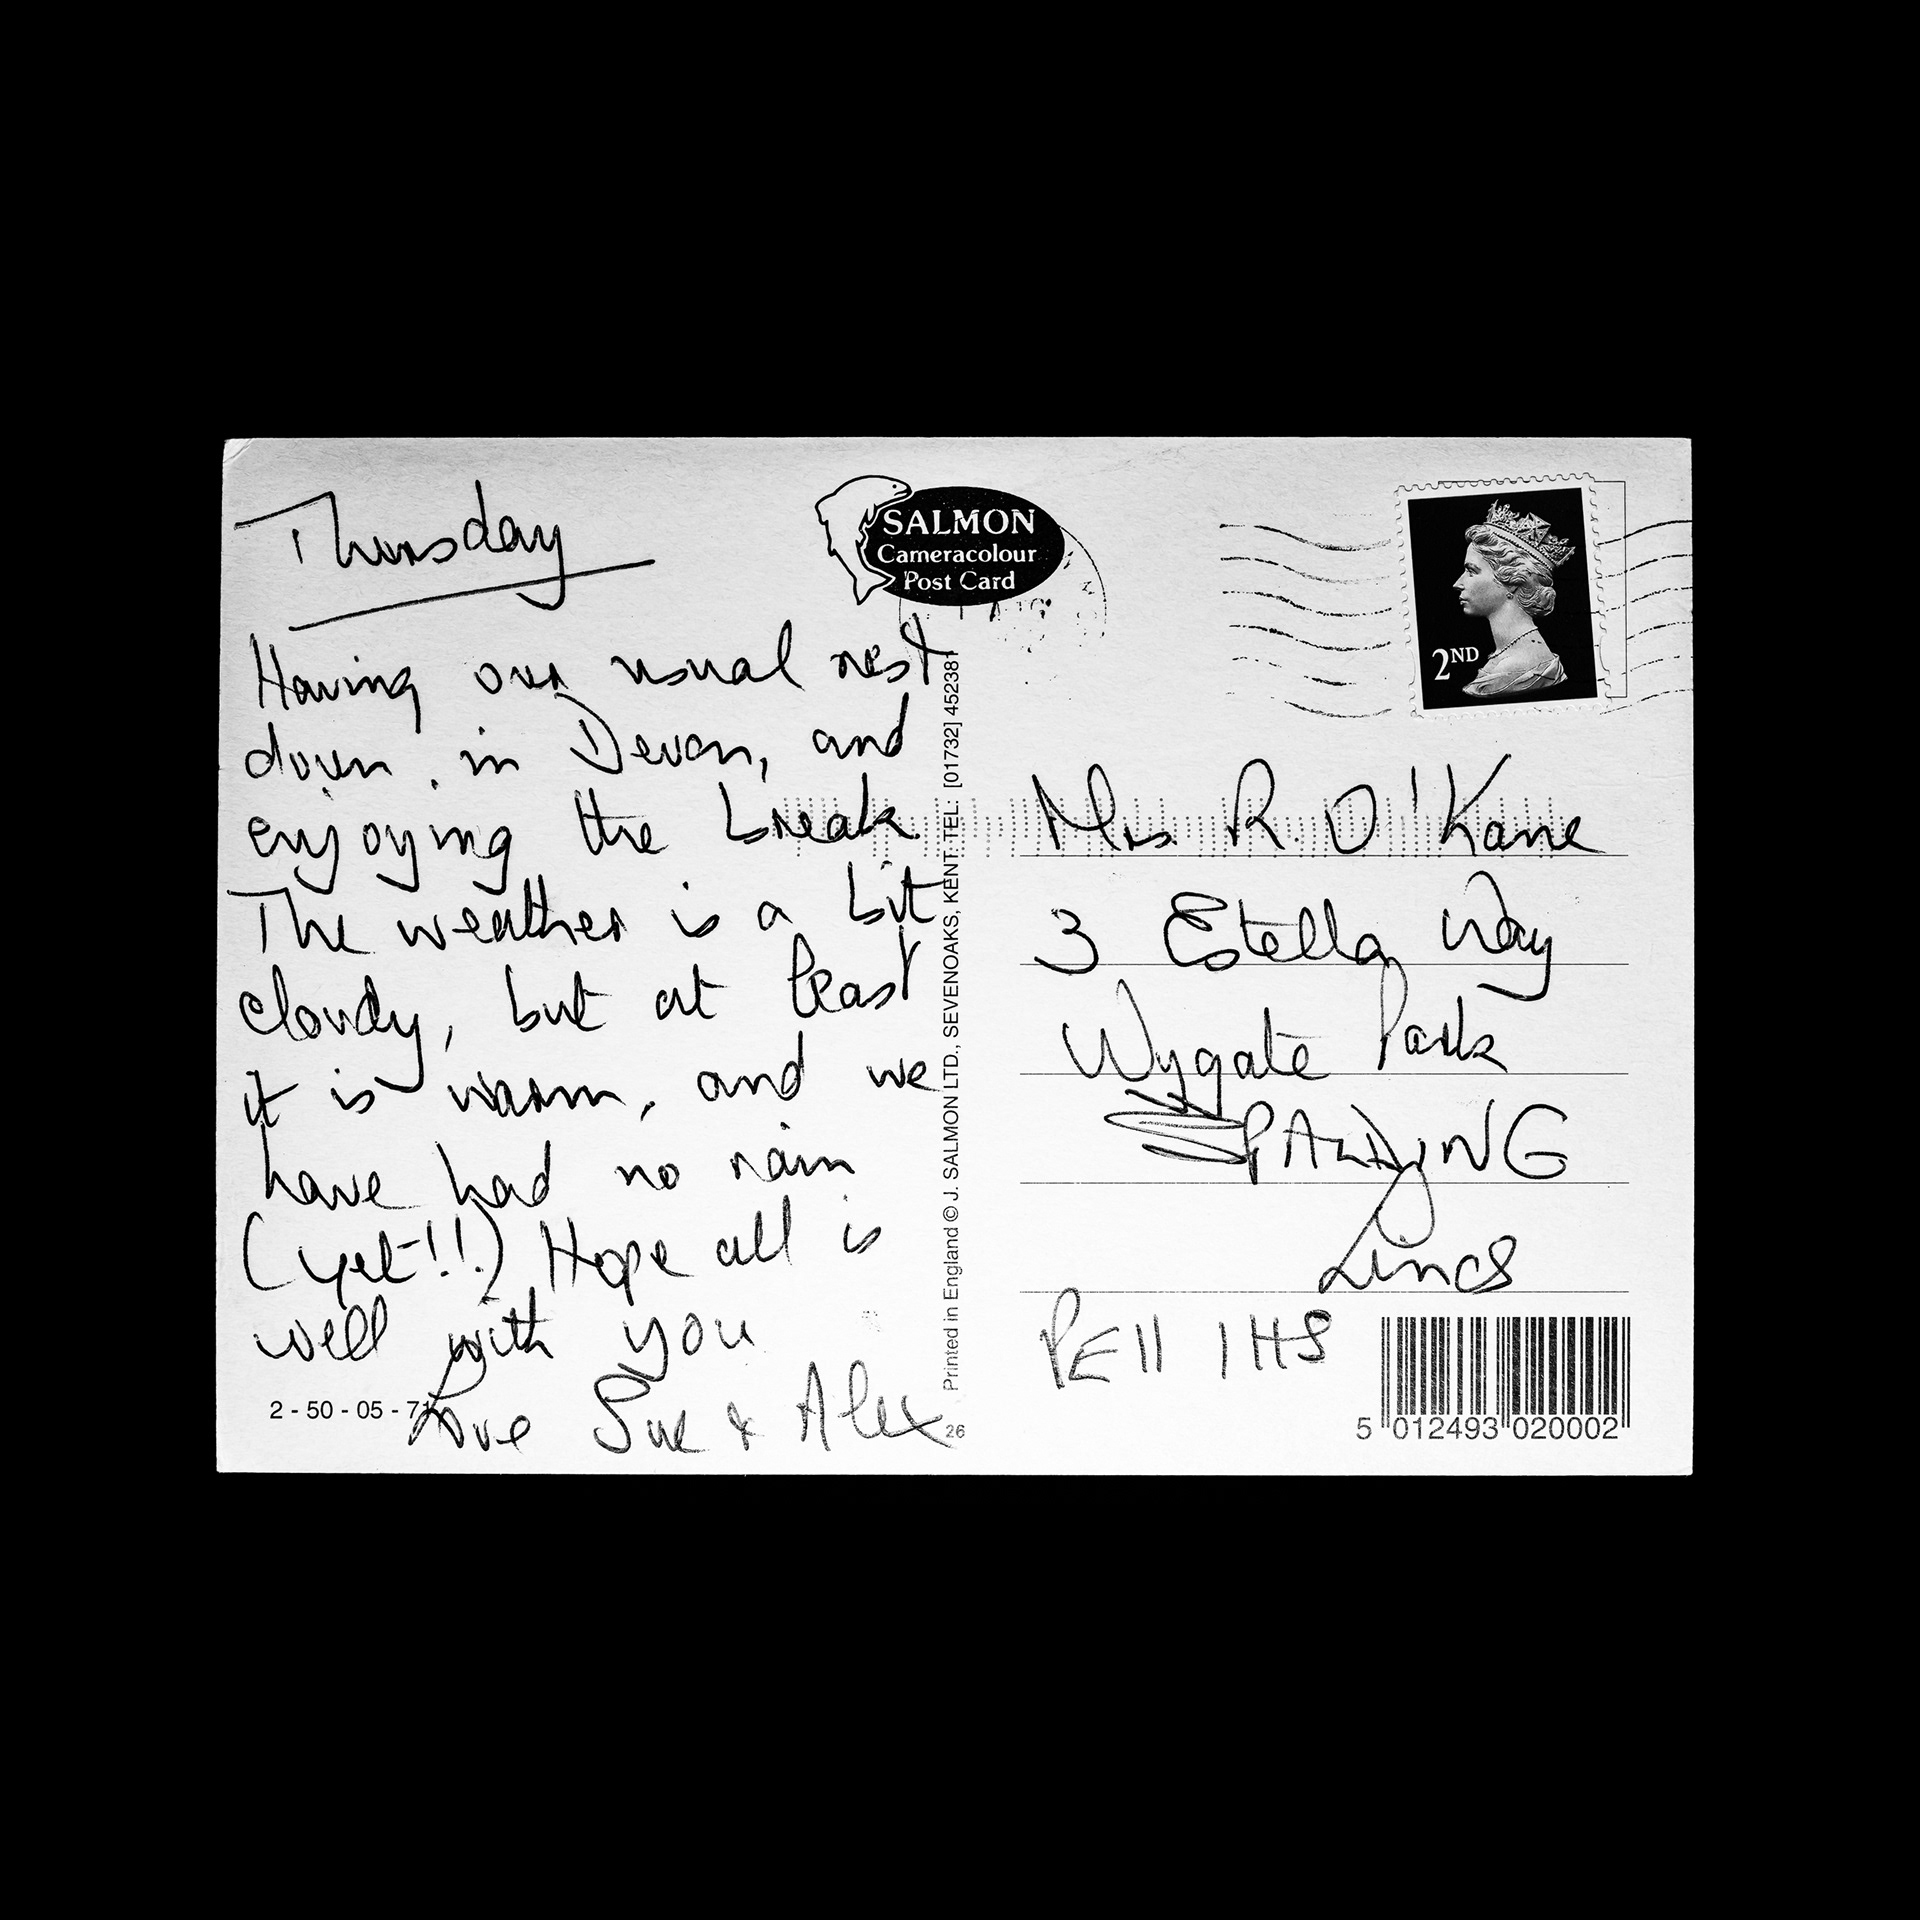 Thursday
Having our usual rest
down in Devon, and
enjoying the break
The weather is a bit
cloudy, but at least
it is warm, and we
have had no rain
(yet!!) Hope all is
well with you
Love Sue & Alex
2 - 50 - 05 - 71
SALMON
Cameracolour
Post Card
AUG
Printed in England © J. SALMON LTD., SEVENOAKS, KENT. TEL: [01732] 452381
26
2ND
Mrs R. O'Kane
3 Estella Way
Wygate Park
SPALDING
Lincs
PE11 1HS
5 012493 020002